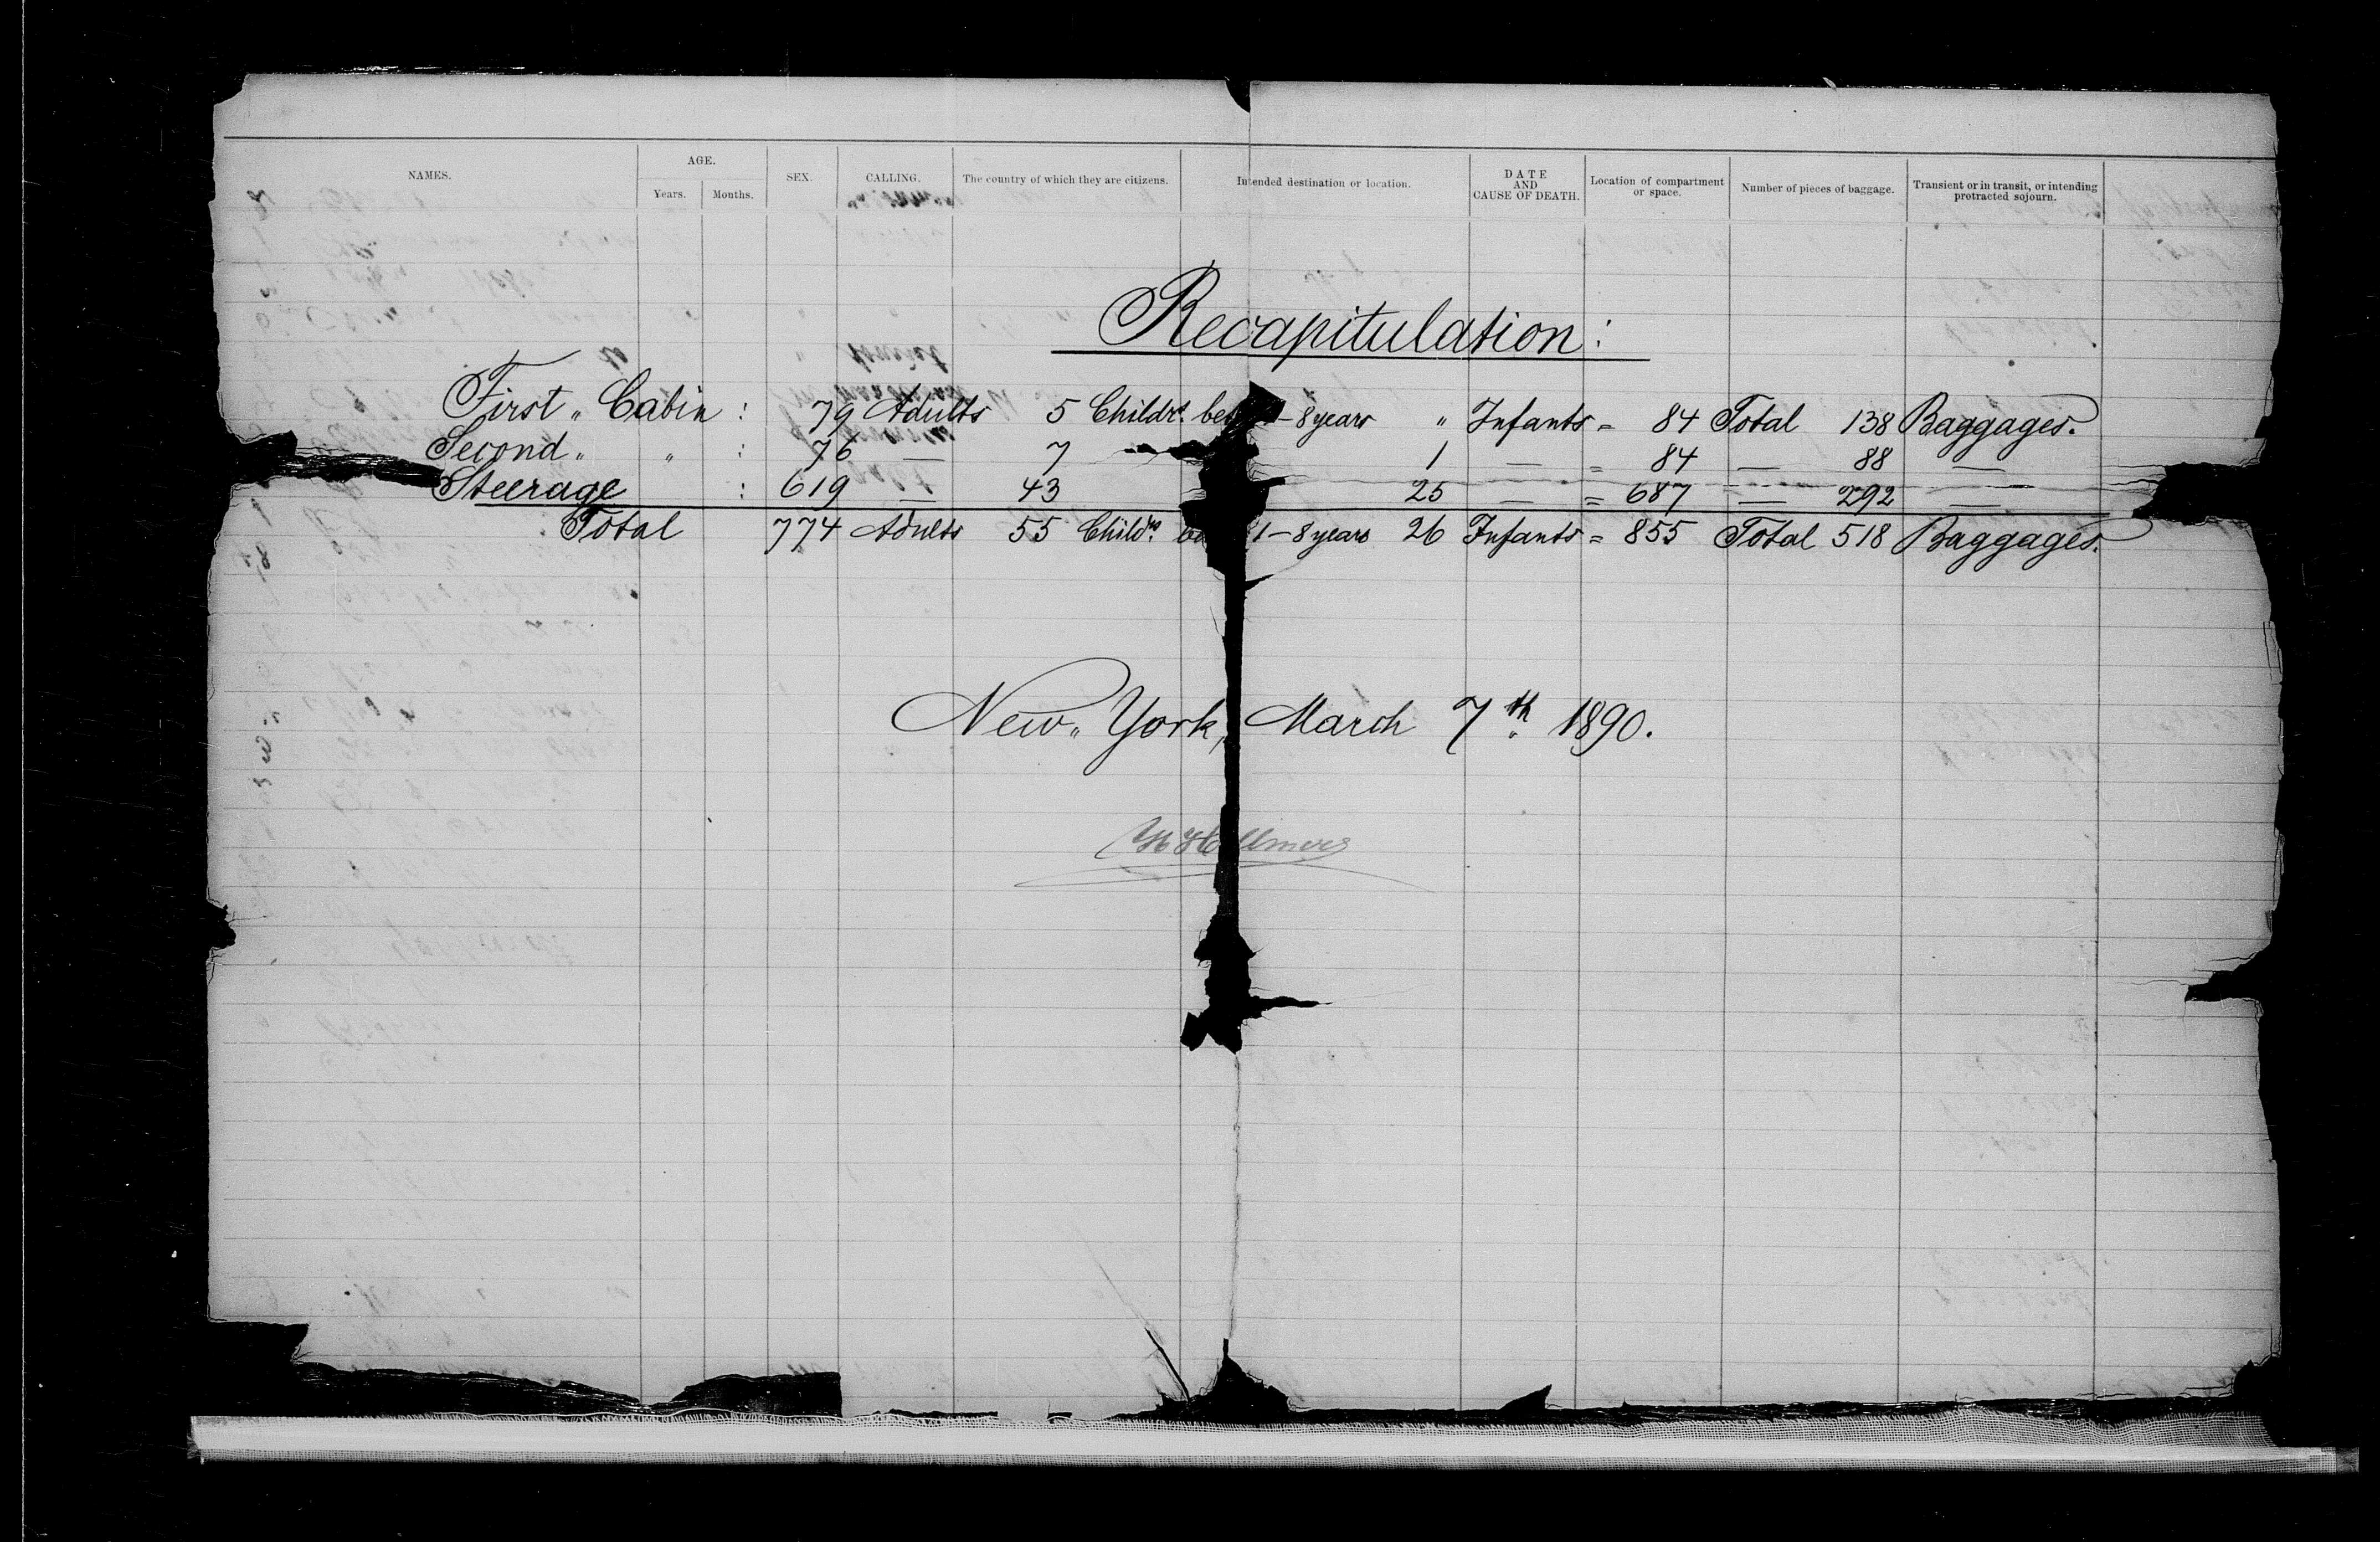 NAMES. AGE. SEX. CALLING. The country of which they are citizens. Intended destination or location. DATE AND CAUSE OF DEATH. Location of compartment or space. Number of pieces of baggage. Transient or in transit, or intending protracted sojourn.
Years. Months.
Recapitulation:
First „ Cabin : 79 Adults 5 Childrs. – 8 years " Infants = 84 Total 138 Baggages.
Second „ „ : 76 — 7 — 1 — = 84 — 88 —
Steerage : 619 — 43 25 — = 687 — 292 —
Total 774 Adults 55 Childrs. 1–8 years 26 Infants = 855 Total 518 Baggages.
New „ York, March 7th 1890.